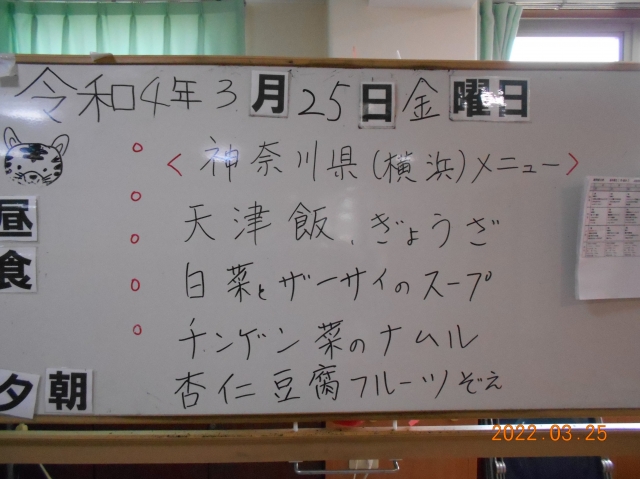 令和4年3月25日金曜日
<神奈川県(横浜)メニュー>
昼食
天津飯、ぎょうざ
白菜とザーサイのスープ
チンゲン菜のナムル
杏仁豆腐フルーツぞえ
夕朝
2022.03.25